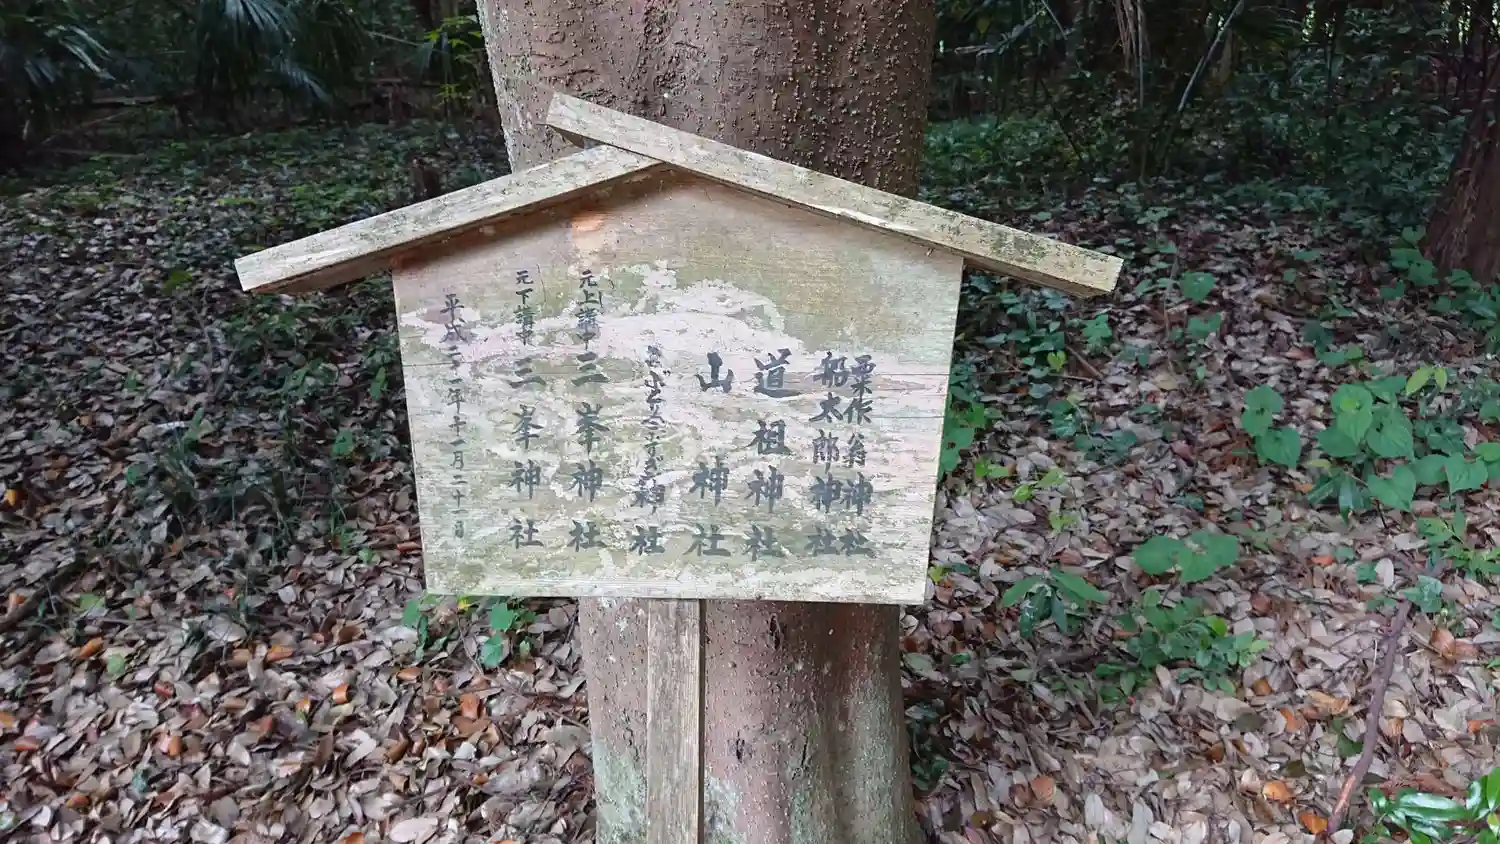 粟作翁神社
船太郎神社
道祖神社
山神社
神社
元上講中 三峯神社
元下講中 三峯神社
平成二十一年十一月二十一日